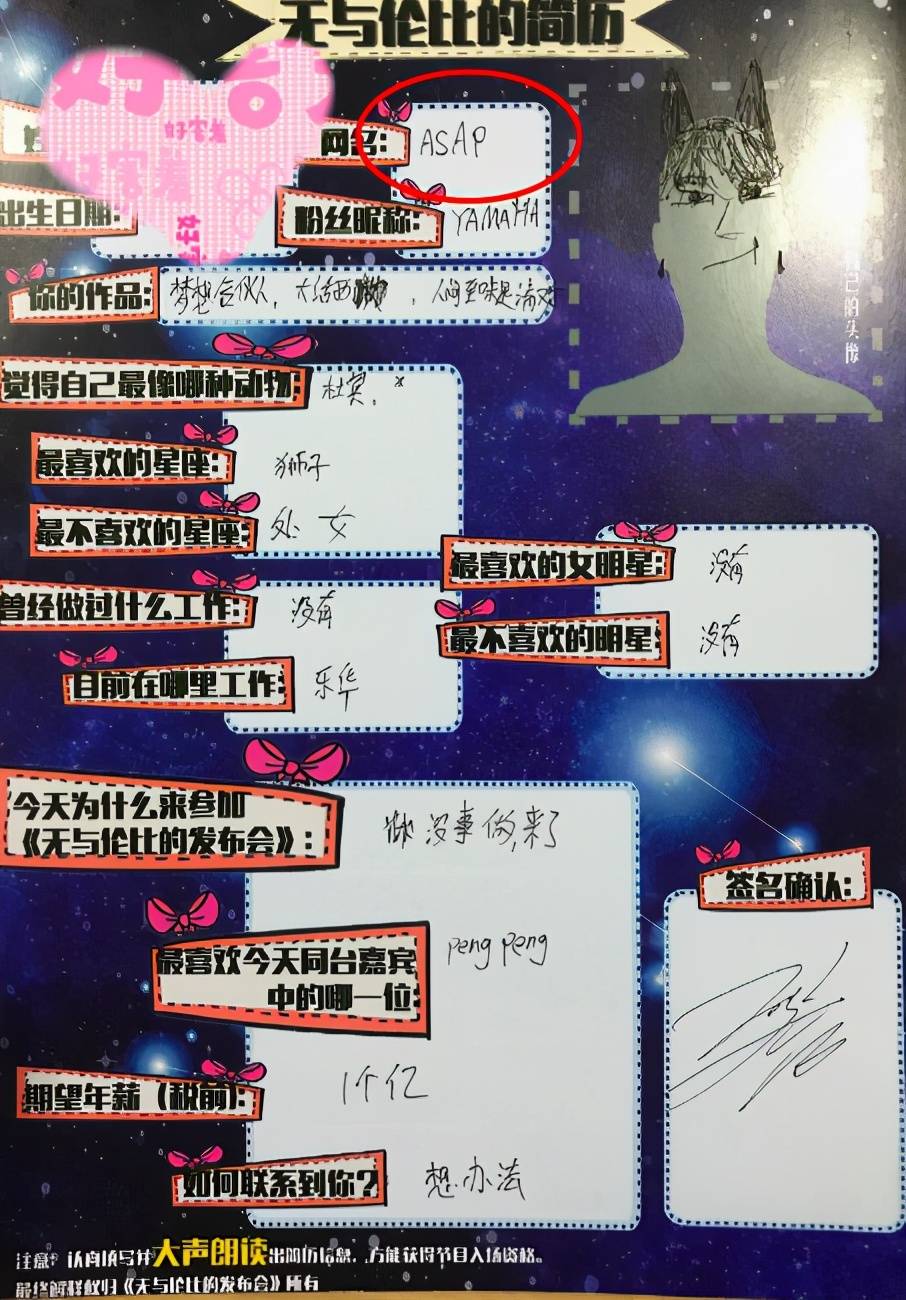 无与伦比的简历
好客
好客着
好客着
网名: ASAP
出生日期:
粉丝昵称: YAMAHA
你的作品: 梦想合伙人, 大话西游, 人间至味是清欢
自己的头像
觉得自己最像哪种动物: 杜宾。
最喜欢的星座: 狮子
最不喜欢的星座: 处女
最喜欢的女明星: 没有
曾经做过什么工作: 没有
最不喜欢的明星: 没有
目前在哪里工作: 乐华
今天为什么来参加
《无与伦比的发布会》: 没事做,来了
签名确认:
最喜欢今天同台嘉宾
中的哪一位: peng peng
期望年薪(税前): 1个亿
如何联系到你? 想办法
注意: 认真填写并大声朗读出简历信息, 方能获得节目入场资格。
最终解释权归《无与伦比的发布会》所有